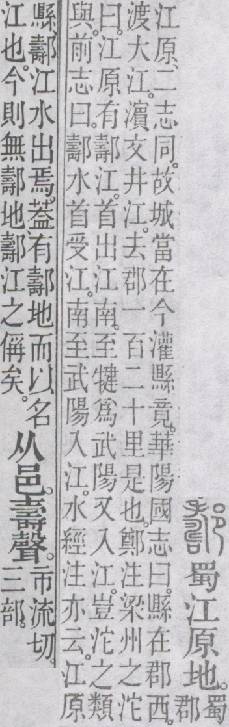 䣝蜀江原地。蜀
郡
江原、二志同。故城當在今灌縣竟。華陽國志曰。縣在郡西。
渡大江。濵文井江。去郡一百二十里是也。鄭注梁州之沱
曰。江原有䣝江。首出江南。至犍爲武陽又入江。豈沱之類
與。前志曰。䣝水首受江。南至武陽入江。水經注亦云。江原
縣䣝江水出焉。葢有䣝地而以名
江也。今則無䣝地䣝江之偁矣。
从邑。壽聲。
市流切。
三部。